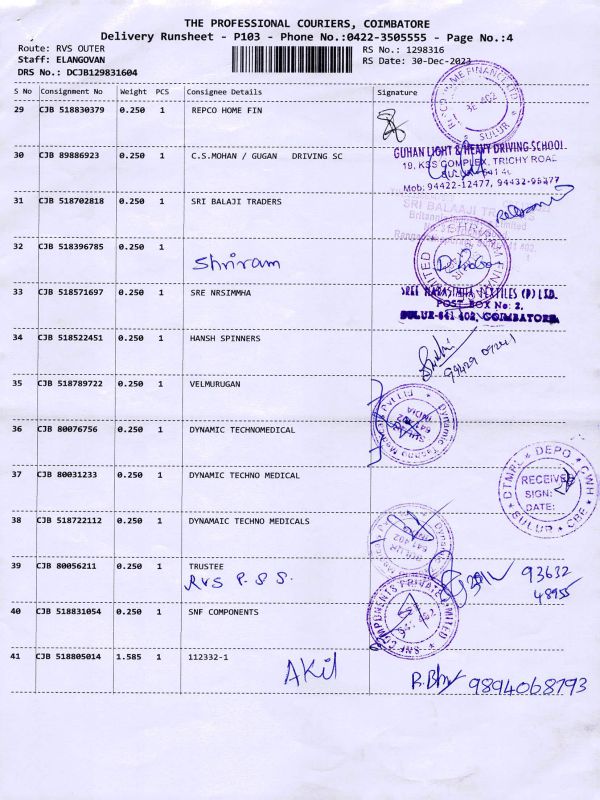 THE PROFESSIONAL COURIERS, COIMBATORE
Delivery Runsheet - P103 - Phone No.:0422-3505555 - Page No.:4
Route: RVS OUTER RS No.: 1298316
Staff: ELANGOVAN RS Date: 30-Dec-2023
DRS No.: DCJB129831604
S No Consignment No Weight PCS Consignee Details Signature
29 CJB 518830379 0.250 1 REPCO HOME FIN
REPCO HOME FINANCE LTD
SULUR
30 CJB 89886923 0.250 1 C.S.MOHAN / GUGAN DRIVING SC
GUHAN LIGHT & HEAVY DRIVING SCHOOL
19, KSS COMPLEX, TRICHY ROAD
SULUR
Mob: 94422-12477, 94432-95477
31 CJB 518702818 0.250 1 SRI BALAJI TRADERS
SRI BALAAJI TRADERS
32 CJB 518396785 0.250 1
Shriram
33 CJB 518571697 0.250 1 SRE NRSIMMHA
SREE NARASIMHA TEXTILES (P) LTD.
POST BOX No: 2,
SULUR-641 402, COIMBATORE.
34 CJB 518522451 0.250 1 HANSH SPINNERS
35 CJB 518789722 0.250 1 VELMURUGAN
36 CJB 80076756 0.250 1 DYNAMIC TECHNOMEDICAL
37 CJB 80031233 0.250 1 DYNAMIC TECHNO MEDICAL
DTMPL * DEPO * CWH
RECEIVED
SIGN:
DATE:
SULUR * CBE
38 CJB 518722112 0.250 1 DYNAMAIC TECHNO MEDICALS
39 CJB 80056211 0.250 1 TRUSTEE
RVS P.S.S.
93632
48955
40 CJB 518831054 0.250 1 SNF COMPONENTS
SNF COMPONENTS PRIVATE LIMITED
41 CJB 518805014 1.585 1 112332-1
AKil
9894068793